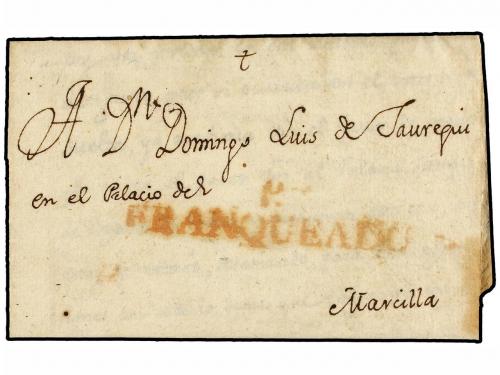 †
A Dn Domingo Luis de Jauregui
en el Palacio de
P.
FRANQUEADO
Marcilla